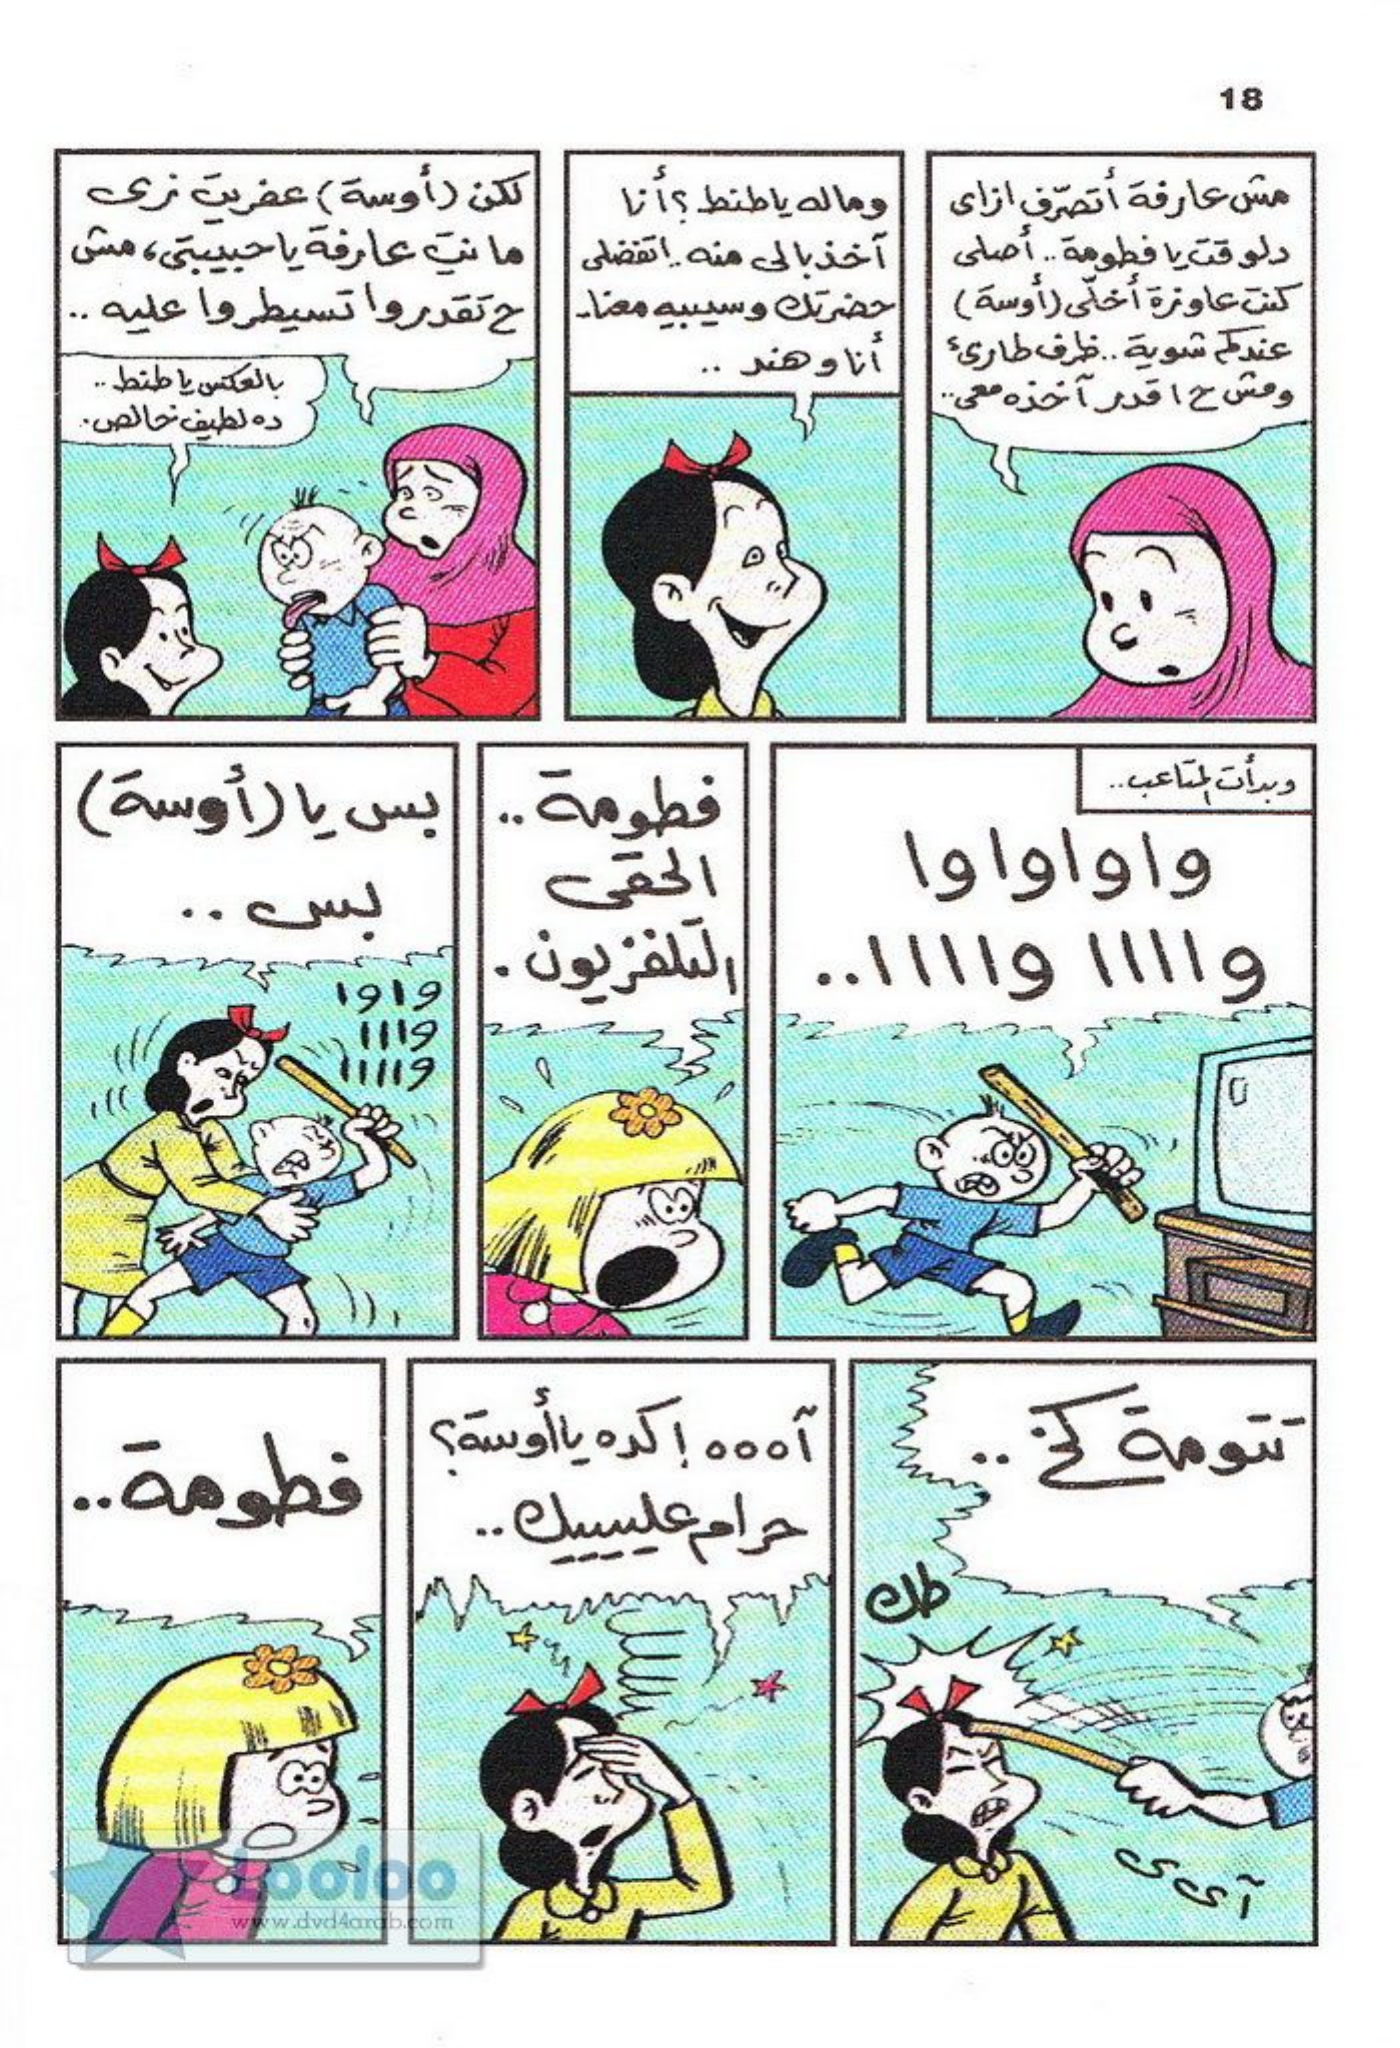 18
مش عارفة أتصرّف ازاى
دلوقت يا فطومة.. أصلى
كنت عاوزة أخلّى (أوسة)
عندكم شوية.. ظرف طارئ
ومش ح اقدر آخذه معى..
وماله يا طنط؟ أنا
آخذ بالى منه.. اتفضلى
حضرتك وسيبيه معنا..
أنا وهند ..
لكن (أوسة) عفريت زى
ما نتِ عارفة يا حبيبتى، مش
ح تقدروا تسيطروا عليه ..
بالعكس يا طنط ..
ده لطيف خالص.
وبدأت المتاعب..
واواواوا
واااا واااا..
فطومة ..
الحقى
التلفزيون .
بس يا (أوسة)
بس ..
واوا
وااا
وااااا
تتومة كخ ..
طك
آى ى ى
آههه ! كده يا أوسة؟
حرام عليييك ..
فطومة ..
Looloo
www.dvd4arab.com